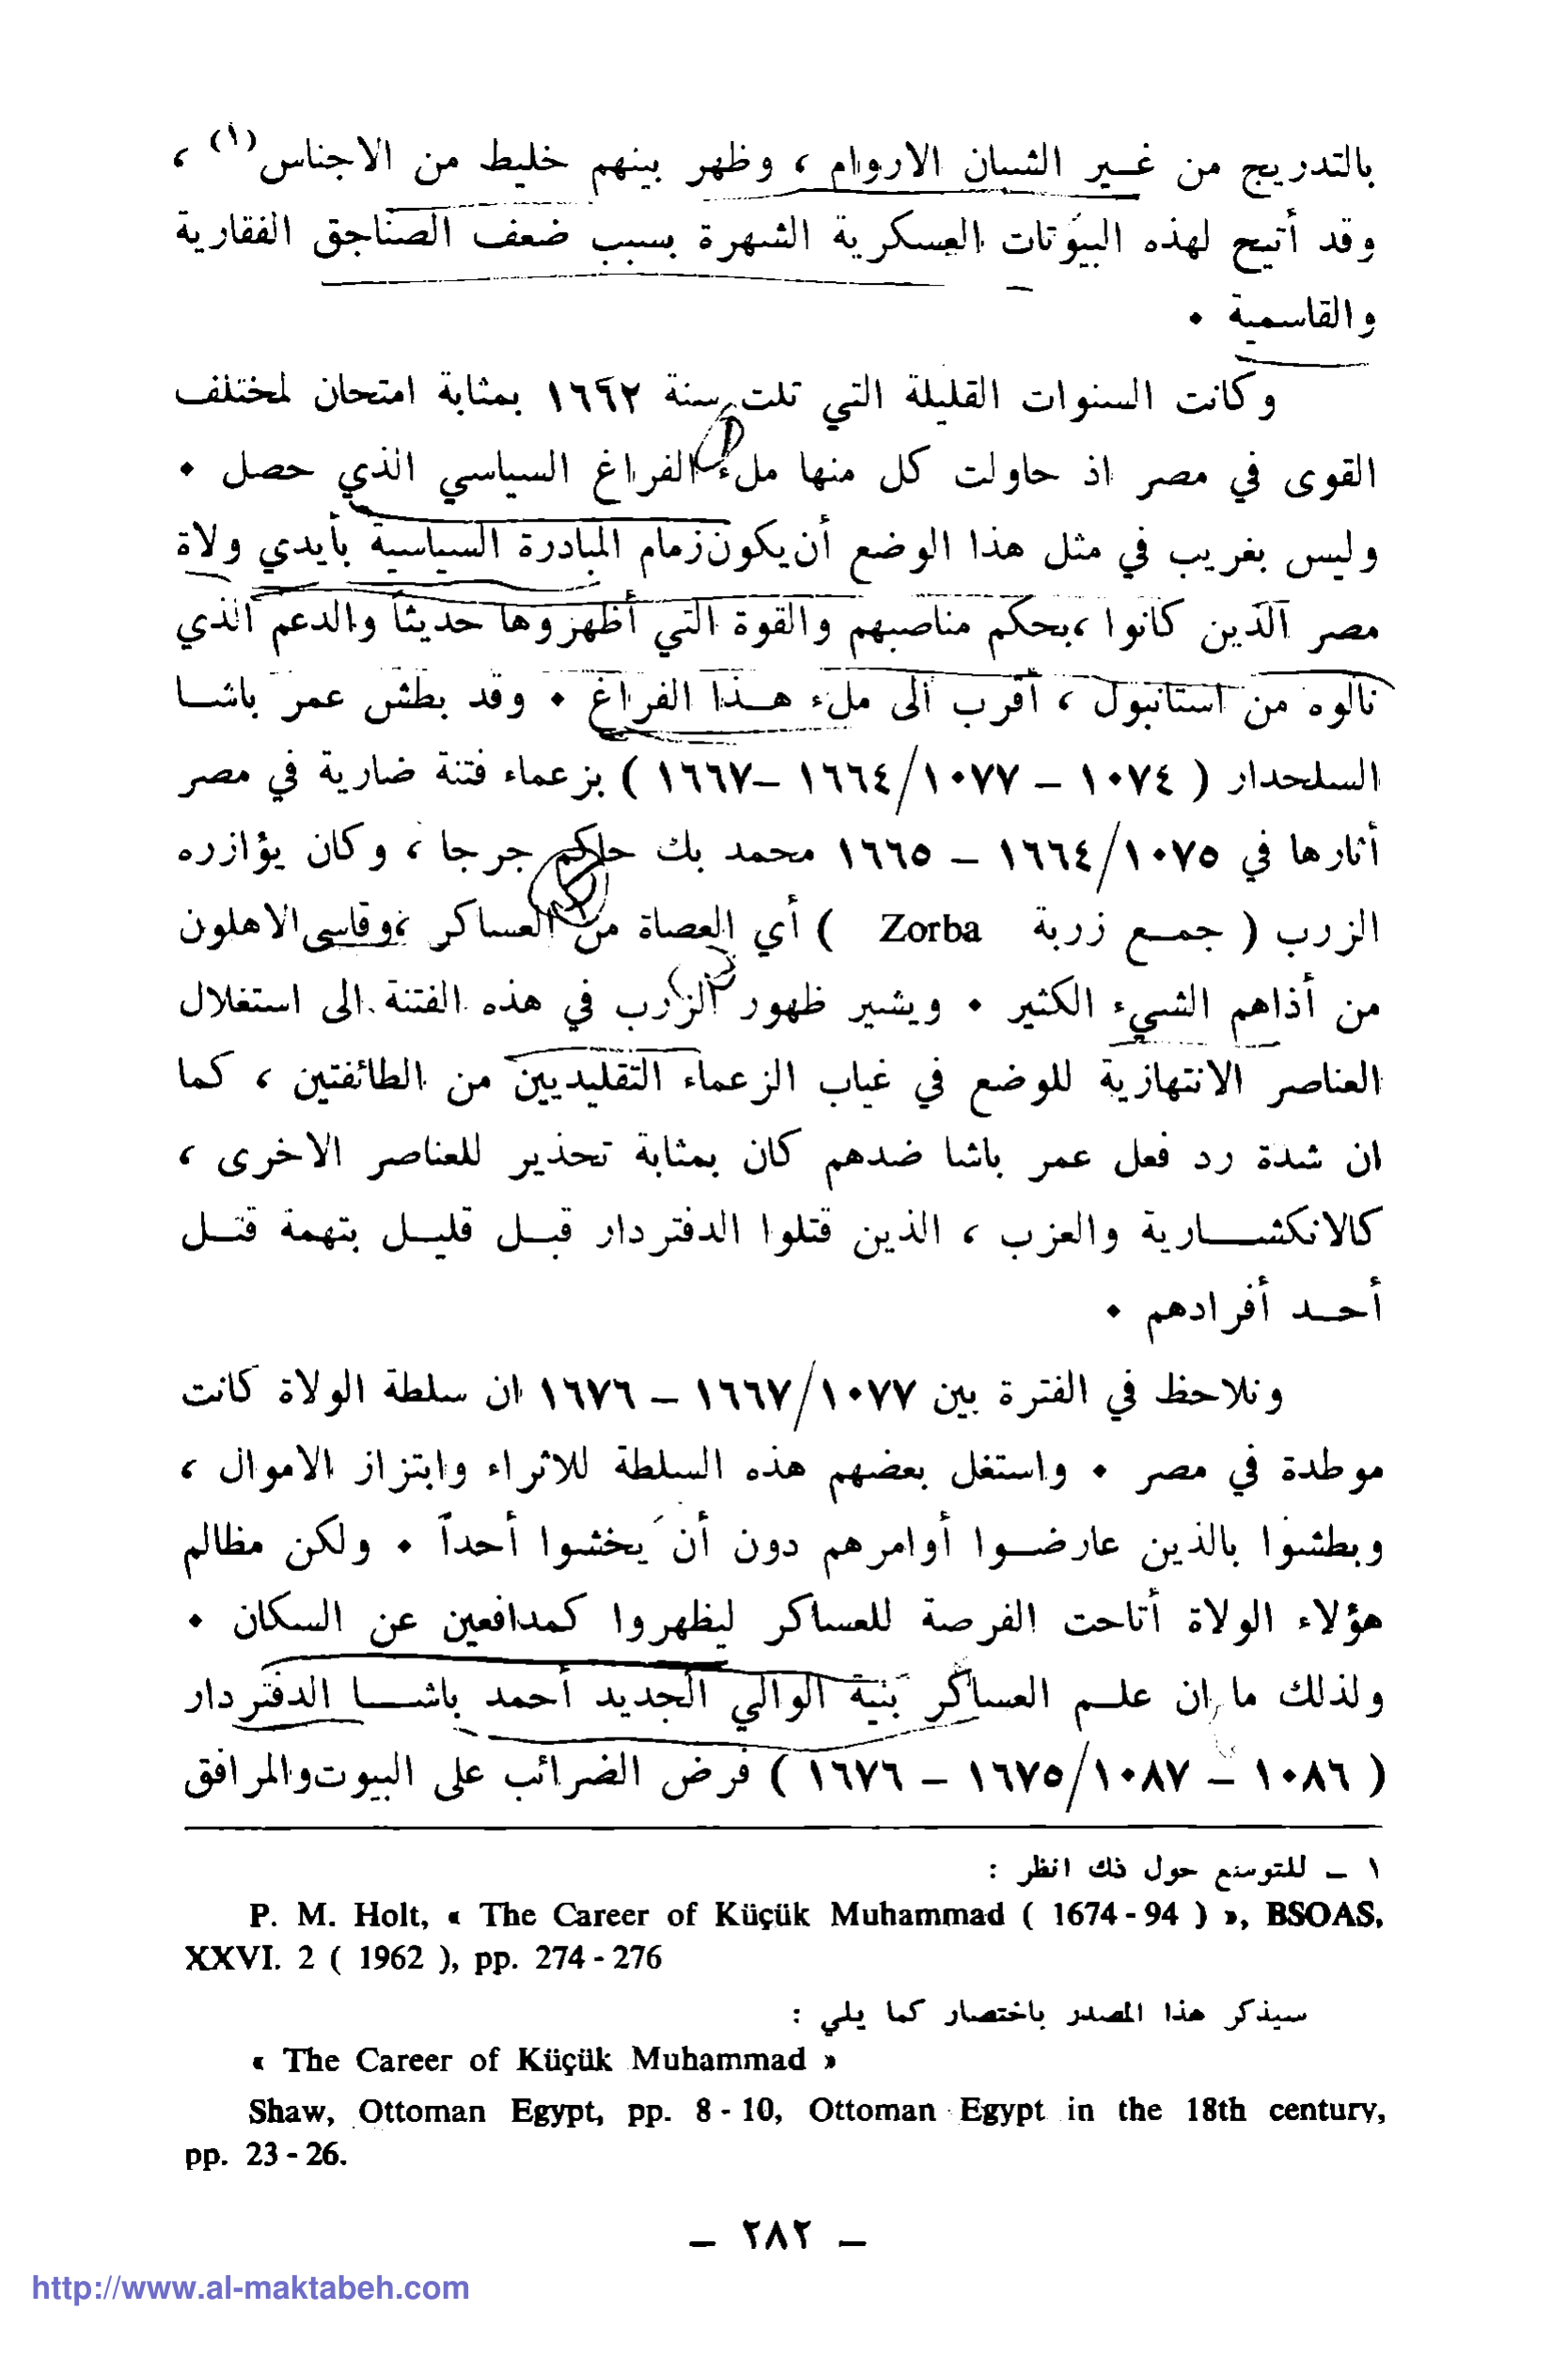 بالتدريج من غـير الشبان الاروام ، وظهر بينهم خليط من الاجناس(١) ،
وقد أتيح لهذه البيوتات العسكرية الشهرة بسبب ضعف الصناجق الفقارية
والقاسمية ٠
وكانت السنوات القليلة التي تلت سنة ١٦٦٢ بمثابة امتحان لمختلف
القوى في مصر اذ حاولت كل منها ملء الفراغ السياسي الذي حصل ٠
وليس بغريب في مثل هذا الوضع أن يكون زمام المبادرة السياسية بأيدي ولاة
مصر الذين كانوا ،بحكم مناصبهم والقوة التي أظهروها حديثاً والدعم الذي
نالوه من استانبول ، أقرب الى ملء هـذا الفراغ ٠ وقد بطش عمر باشـا
السلحدار ( ١٠٧٤ – ١٠٧٧/ ١٦٦٤ –١٦٦٧ ) بزعماء فتنة ضارية في مصر
أثارها في ١٠٧٥/ ١٦٦٤ – ١٦٦٥ محمد بك حاكم جرجا ، وكان يؤازره
الزرب ( جمـع زربة Zorba ) أي العصاة من العساكر ،وقاسى الاهلون
من أذاهم الشيء الكثير ٠ ويشير ظهور الزرب في هذه الفتنة الى استغلال
العناصر الانتهازية للوضع في غياب الزعماء التقليديين من الطائفتين ، كما
ان شدة رد فعل عمر باشا ضدهم كان بمثابة تحذير للعناصر الاخرى ،
كالانكشـــارية والعزب ، الذين قتلوا الدفتردار قبـل قليـل بتهمة قتـل
أحـد أفرادهم ٠
ونلاحظ في الفترة بين ١٠٧٧/ ١٦٦٧ – ١٦٧٦ ان سلطة الولاة كانت
موطدة في مصر ٠ واستغل بعضهم هذه السلطة للاثراء وابتزاز الاموال ،
وبطشوا بالذين عارضـوا أوامرهم دون أن يخشوا أحداً ٠ ولكن مظالم
هؤلاء الولاة أتاحت الفرصة للعساكر ليظهروا كمدافعين عن السكان ٠
ولذلك ما ان علـم العساكر بنية الوالي الجديد أحمد باشـــا الدفتردار
( ١٠٨٦ – ١٠٨٧/ ١٦٧٥ – ١٦٧٦ ) فرض الضرائب على البيوت والمرافق
١ – للتوسع حول ذك انظر :
P. M. Holt, « The Career of Küçük Muhammad ( 1674 - 94 ) », BSOAS,
XXVI. 2 ( 1962 ), pp. 274 - 276
سيذكر هذا المصدر باختصار كما يلي :
« The Career of Küçük Muhammad »
Shaw, Ottoman Egypt, pp. 8 - 10, Ottoman Egypt in the 18th century,
pp. 23 - 26.
– ٢٨٢ –
http://www.al-maktabeh.com